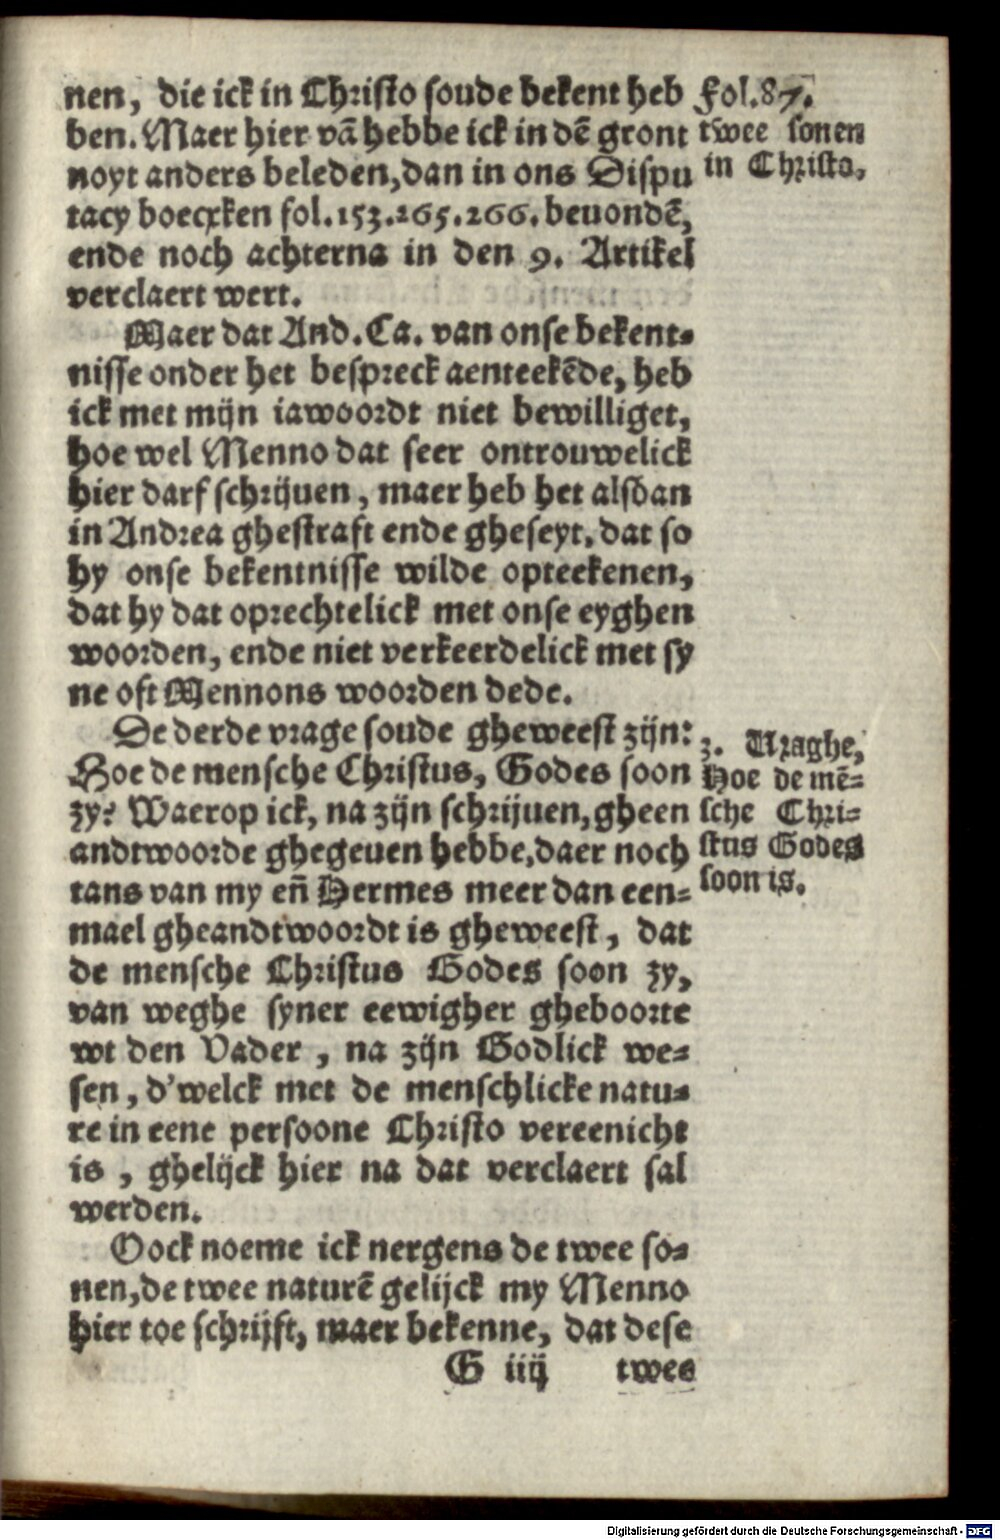 nen, die ick in Christo soude bekent heb
ben. Maer hier vā hebbe ick in dē gront
noyt anders beleden, dan in ons Dispu
tacy boecxken fol. 153. 265. 266. beuondē,
ende noch achterna in den 9. Artikel
verclaert wert.
Maer dat And. Ca. van onse bekent-
nisse onder het bespreck aenteekēde, heb
ick met mijn iawoordt niet bewilliget,
hoe wel Menno dat seer ontrouwelick
hier darf schrijuen, maer heb het alsdan
in Andrea ghestraft ende gheseyt, dat so
hy onse bekentnisse wilde opteekenen,
dat hy dat oprechtelick met onse eyghen
woorden, ende niet verkeerdelick met sy
ne oft Mennons woorden dede.
De derde vrage soude gheweest zijn:
Hoe de mensche Christus, Godes soon
zy? Waerop ick, na zijn schrijuen, gheen
andtwoorde ghegeuen hebbe, daer noch
tans van my eñ Hermes meer dan een-
mael gheandtwoordt is gheweest, dat
de mensche Christus Godes soon zy,
van weghe syner eewigher gheboorte
wt den Vader, na zijn Godlick we-
sen, d'welck met de menschlicke natu-
re in eene persoone Christo vereenicht
is, ghelijck hier na dat verclaert sal
werden.
Oock noeme ick nergens de twee so-
nen, de twee naturē gelijck my Menno
hier toe schrijft, maer bekenne, dat dese
G iiij twee
fol. 87.
twee sonen
in Christo.
3. Uraghe,
Hoe de mē-
sche Chri-
stus Godes
soon is.
Digitalisierung gefördert durch die Deutsche Forschungsgemeinschaft - DFG